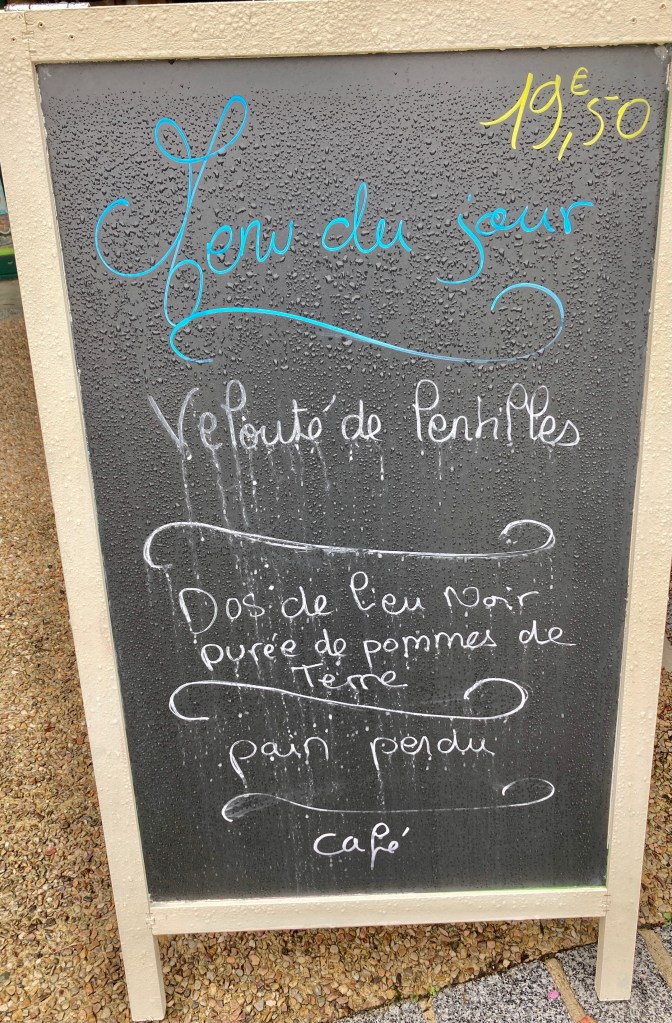 19,50€
Menu du jour
Velouté de lentilles
Dos de lieu Noir
purée de pommes de
Terre
pain perdu
café